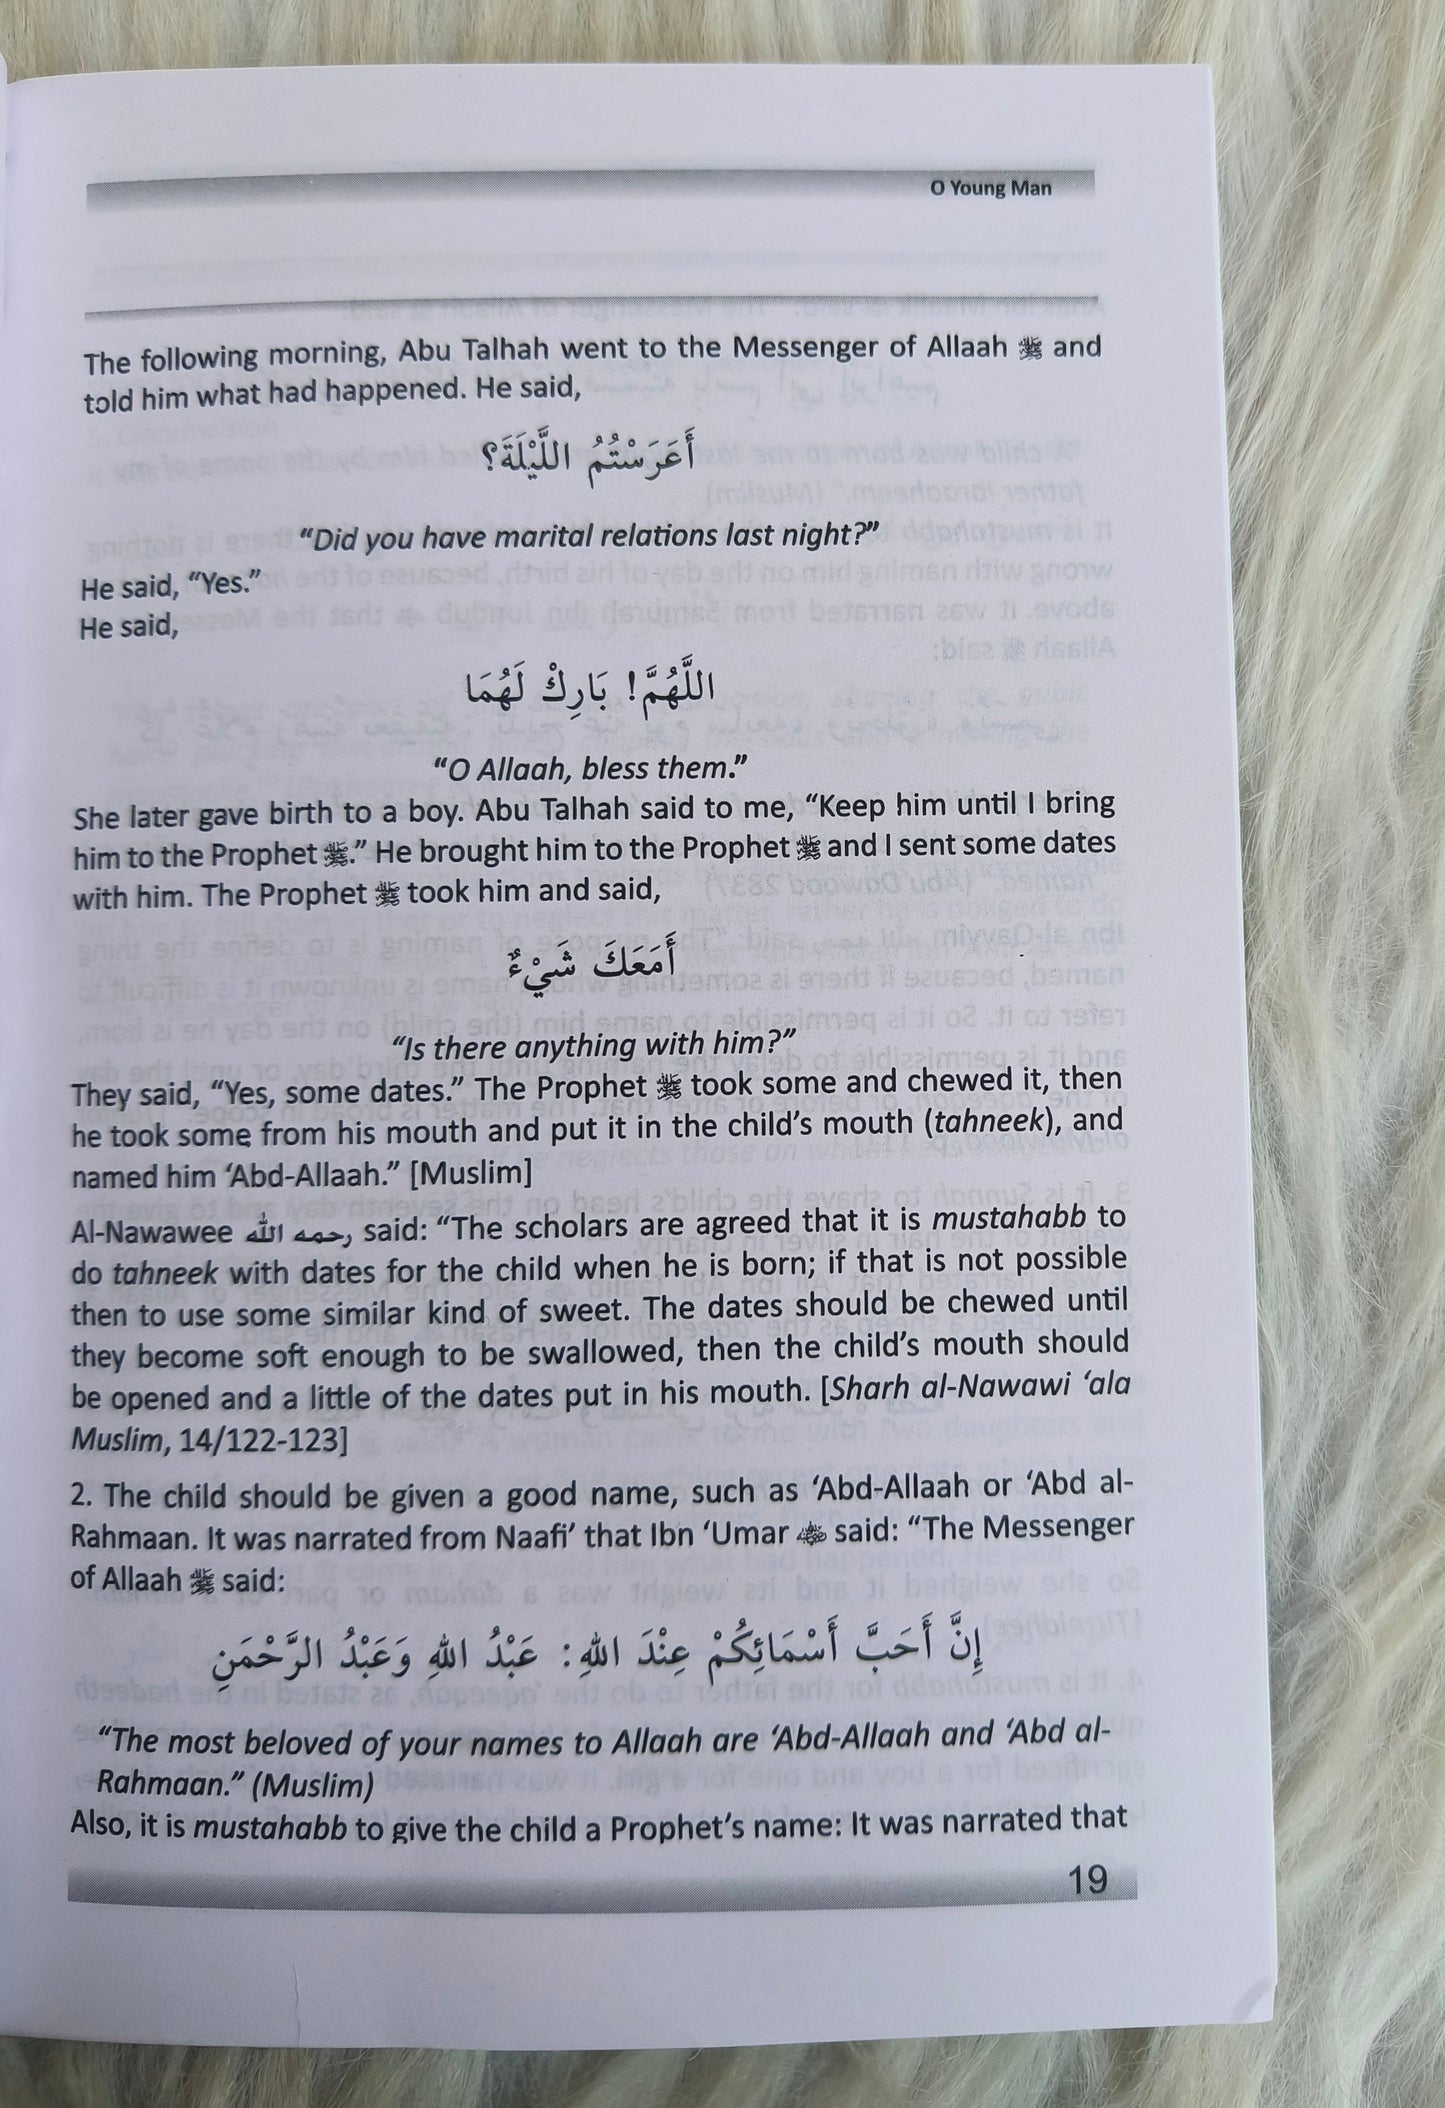 O Young Man
The following morning, Abu Talhah went to the Messenger of Allaah ﷺ and
told him what had happened. He said,
أَعَرَسْتُمُ اللَّيْلَةَ؟
“Did you have marital relations last night?”
He said, “Yes.”
He said,
اللَّهُمَّ! بَارِكْ لَهُمَا
“O Allaah, bless them.”
She later gave birth to a boy. Abu Talhah said to me, “Keep him until I bring
him to the Prophet ﷺ.” He brought him to the Prophet ﷺ and I sent some dates
with him. The Prophet ﷺ took him and said,
أَمَعَكَ شَيْءٌ
“Is there anything with him?”
They said, “Yes, some dates.” The Prophet ﷺ took some and chewed it, then
he took some from his mouth and put it in the child’s mouth (tahneek), and
named him ‘Abd-Allaah.” [Muslim]
Al-Nawawee رحمه الله said: “The scholars are agreed that it is mustahabb to
do tahneek with dates for the child when he is born; if that is not possible
then to use some similar kind of sweet. The dates should be chewed until
they become soft enough to be swallowed, then the child’s mouth should
be opened and a little of the dates put in his mouth. [Sharh al-Nawawi ‘ala
Muslim, 14/122-123]
2. The child should be given a good name, such as ‘Abd-Allaah or ‘Abd al-
Rahmaan. It was narrated from Naafi’ that Ibn ‘Umar said: “The Messenger
of Allaah ﷺ said:
إِنَّ أَحَبَّ أَسْمَائِكُمْ عِنْدَ اللهِ: عَبْدُ اللهِ وَعَبْدُ الرَّحْمَنِ
“The most beloved of your names to Allaah are ‘Abd-Allaah and ‘Abd al-
Rahmaan.” (Muslim)
Also, it is mustahabb to give the child a Prophet’s name: It was narrated that
19